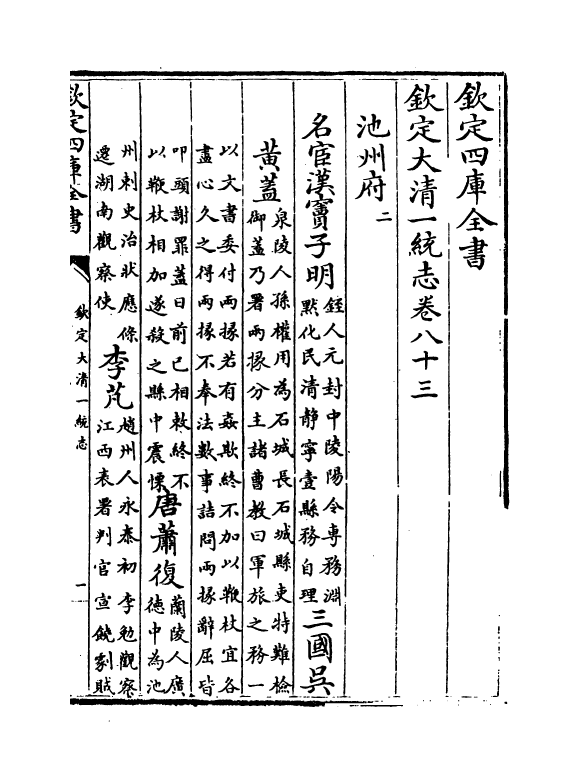 欽定四庫全書
欽定大清一統志卷八十三
池州府二
名宦漢竇子明
銍人元封中陵陽令專務淵
黙化民清靜寧壹縣務自理
三國吳
黃蓋
泉陵人孫權用為石城長石城縣吏特難檢
御蓋乃署兩掾分主諸曹教曰軍旅之務一
以文書委付兩掾若有姦欺終不加以鞭杖宜各
盡心久之得兩掾不奉法數事詰問兩掾辭屈皆
叩頭謝罪蓋曰前已相敕終不
以鞭杖相加遂殺之縣中震慄
唐蕭復
蘭陵人廣
德中為池
州刺史治狀應條
遷湖南觀察使
李芃
趙州人永泰初李勉觀察
江西表署判官宣饒劇賊
欽定四庫全書
欽定大清一統志
一